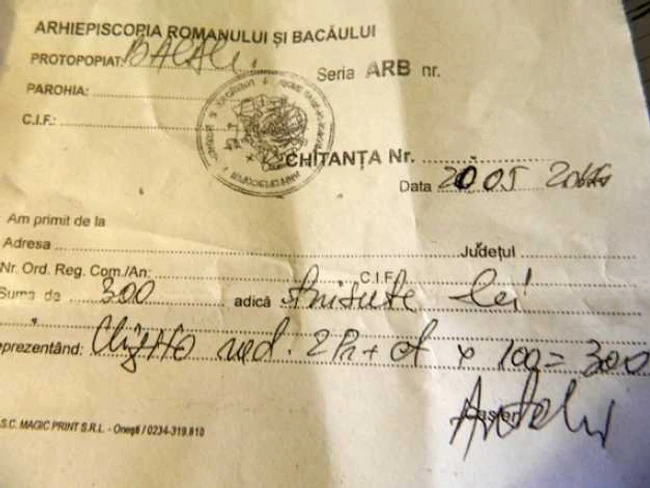 ARHIEPISCOPIA ROMANULUI ȘI BACĂULUI
PROTOPOPIAT: BACĂU.
Seria ARB nr.
PAROHIA:
C.I.F.:
CHITANȚA Nr.
Data 20 05
Am primit de la
Adresa Județul
Nr. Ord. Reg. Com./An: C.I.F.
Suma de 300 adică trisute lei
eprezentând: 2 Pr + x 100 = 300
Casier
S.C. MAGIC PRINT S.R.L. - Onești / 0234-319.810